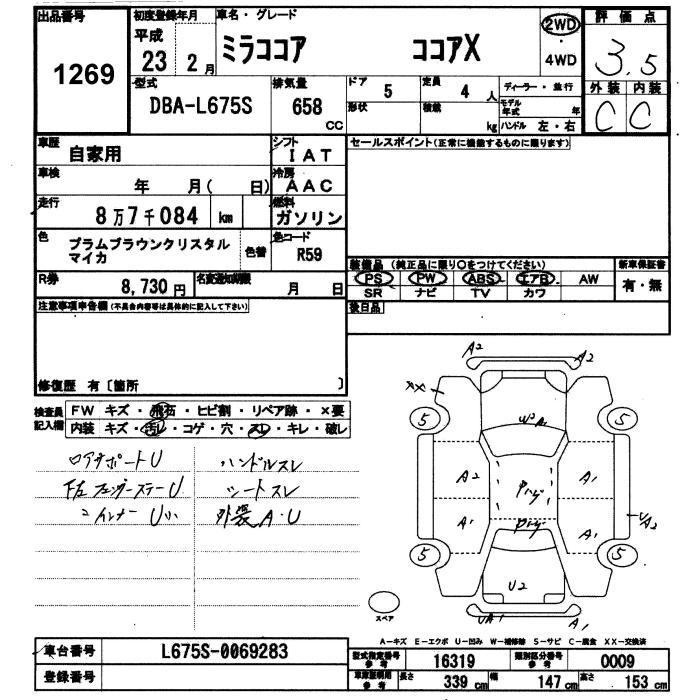 出品番号 初度登録年月 車名・グレード 評価点
1269 平成 23 2月 ミラココア ココアX 2WD・4WD 3.5
型式 排気量 ドア 定員 ディーラー・並行 外装 内装
DBA-L675S 658 CC 5 4人 モデル年式 年 C C
形状 積載 kg ハンドル 左・右
車歴 自家用 シフト IAT セールスポイント(正常に機能するものに限ります)
車検 年 月( 日) 冷房 AAC
走行 8万7千084 km 燃料 ガソリン
色 プラムブラウンクリスタル 色替 色コード R59
マイカ
装備品 (純正品に限り○をつけてください) 新車保証書
R券 8,730円 名変通知期限 月 日 PS PW ABS エアB AW 有・無
SR ナビ TV カワ
注意事項申告欄(不具合内容等は具体的に記入して下さい) 後日品
修復歴 有〔箇所 〕
検査員 FW キズ・飛石・ヒビ割・リペア跡・×要
記入欄 内装 キズ・汚レ・コゲ・穴・スレ・キレ・破レ
ロアサポートU ハンドルスレ
シートスレ
インナー U小 外装A・U
A2 A2
XX
5 U2 A1 5
A2 A1
A1 A1
5 5
U2
A1
スペア
A-キズ E-エクボ U-凹み W-補修跡 S-サビ C-腐食 XX-交換済
車台番号 L675S-0069283 型式指定番号 参考 16319 類別区分番号 参考 0009
登録番号 車庫証明用 参考 長さ 339 cm 幅 147 cm 高さ 153 cm